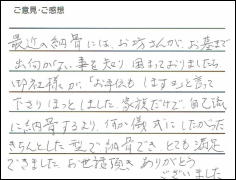 ご意見・ご感想
最近の納骨には、お坊さんが、お墓まで
出向かない事を知り困っておりましたら
御社様が、「お手伝もします」と言って
下さりほっとしました。家族だけで、自己流
に納骨するより、何か儀式にしたからだ
きちんとした型で納骨でき とても満足
できました。お世話頂き ありがとう
ございました